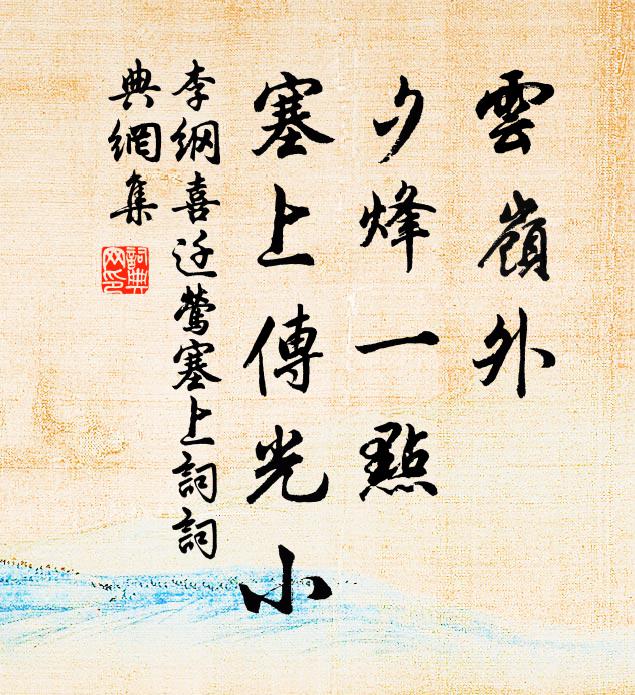 雲嶺外
夕烽一點
塞上傳光小
李綱喜迁鶯塞上詞詞
典網集
詞典
网印